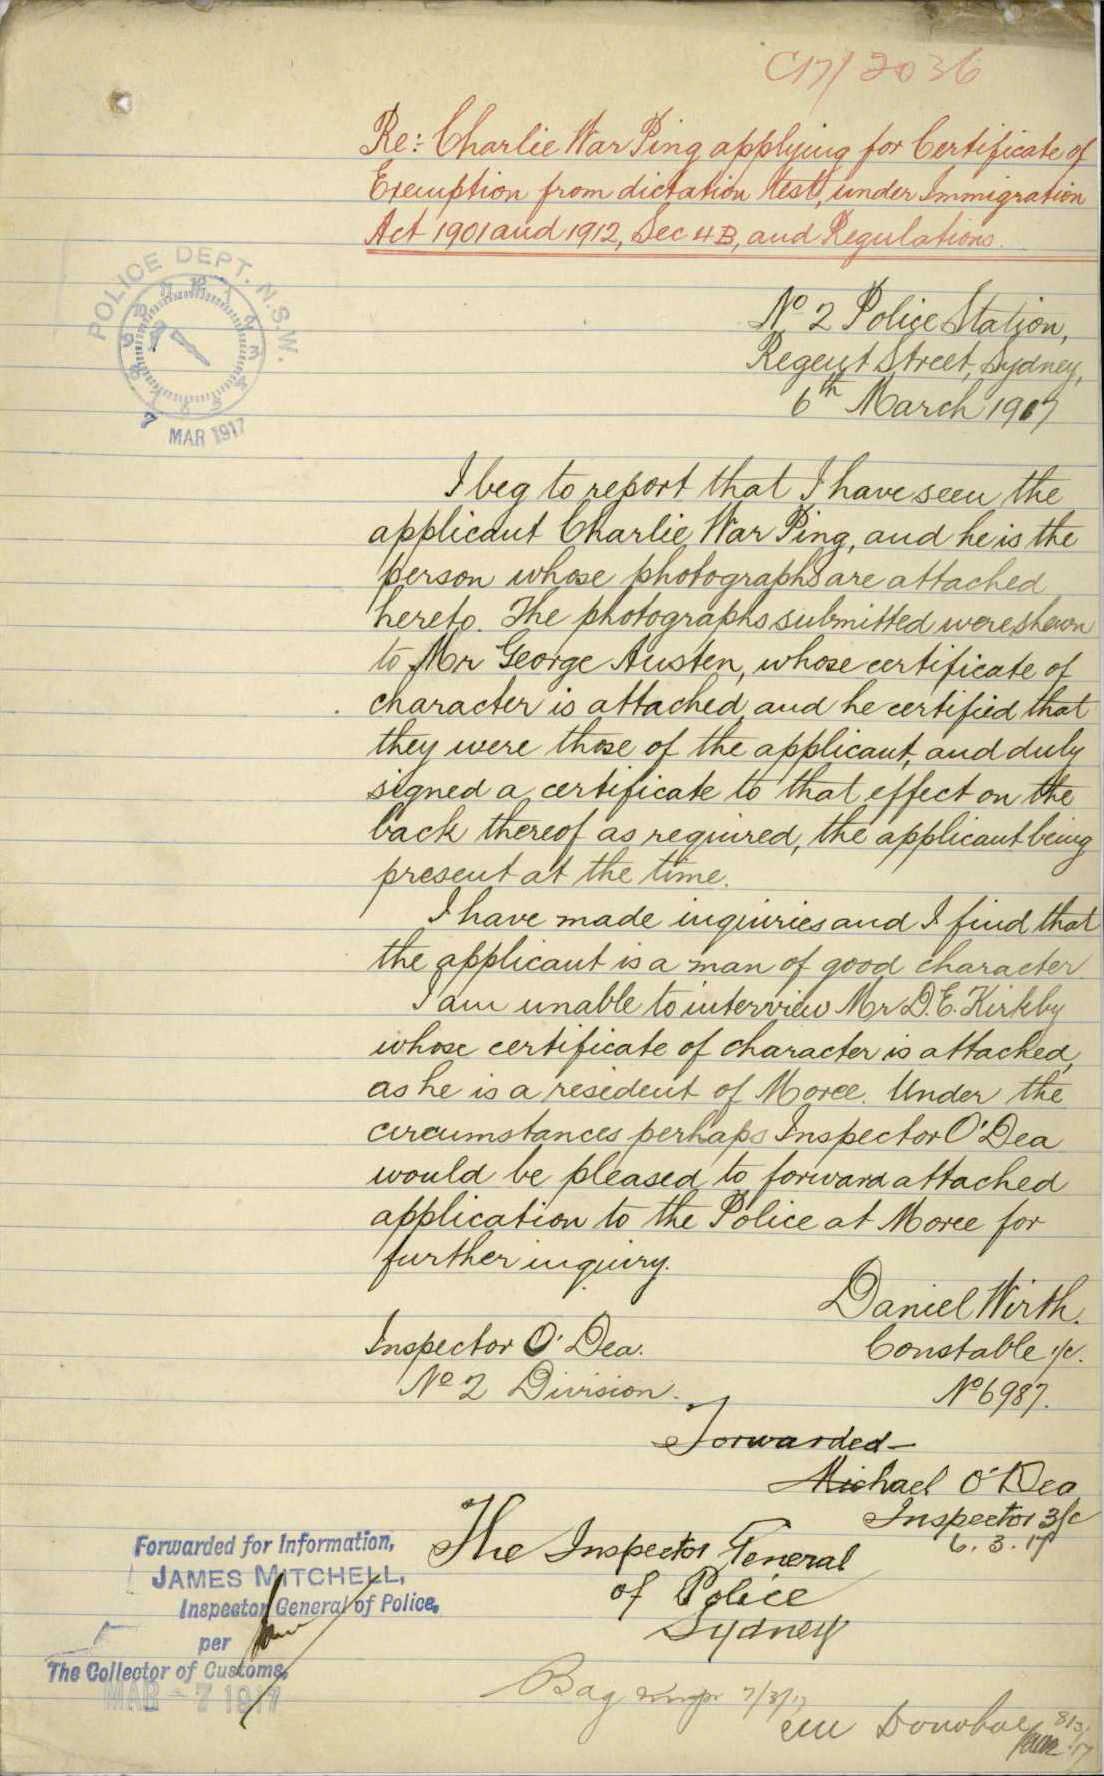 C17/2036
Re:- Charlie War Ping applying for Certificate of
Exemption from dictation test, under Immigration
Act 1901 and 1912, Sec 4B, and Regulations.
POLICE DEPT. N.S.W.
7 MAR 1917
No 2 Police Station,
Regent Street, Sydney,
6th March 1917
I beg to report that I have seen the
applicant Charlie War Ping, and he is the
person whose photographs are attached
hereto. The photographs submitted were shewn
to Mr George Austen, whose certificate of
character is attached, and he certified that
they were those of the applicant, and duly
signed a certificate to that effect on the
back thereof as required, the applicant being
present at the time.
I have made inquiries and I find that
the applicant is a man of good character
I am unable to interview Mr D. E. Kirkby
whose certificate of character is attached,
as he is a resident of Moree. Under the
circumstances perhaps Inspector O'Dea
would be pleased to forward attached
application to the Police at Moree for
further inquiry.
Daniel Wirth.
Constable 1/c.
No 6987.
Inspector O'Dea.
No 2 Division.
Forwarded
Michael O'Dea
Inspector 3/c
6.3.17
The Inspector General
of Police
Sydney
Forwarded for Information,
JAMES MITCHELL,
Inspector General of Police,
per
The Collector of Customs,
MAR - 7 1917
Bag 7/3/17
Donohoe 8/3/17